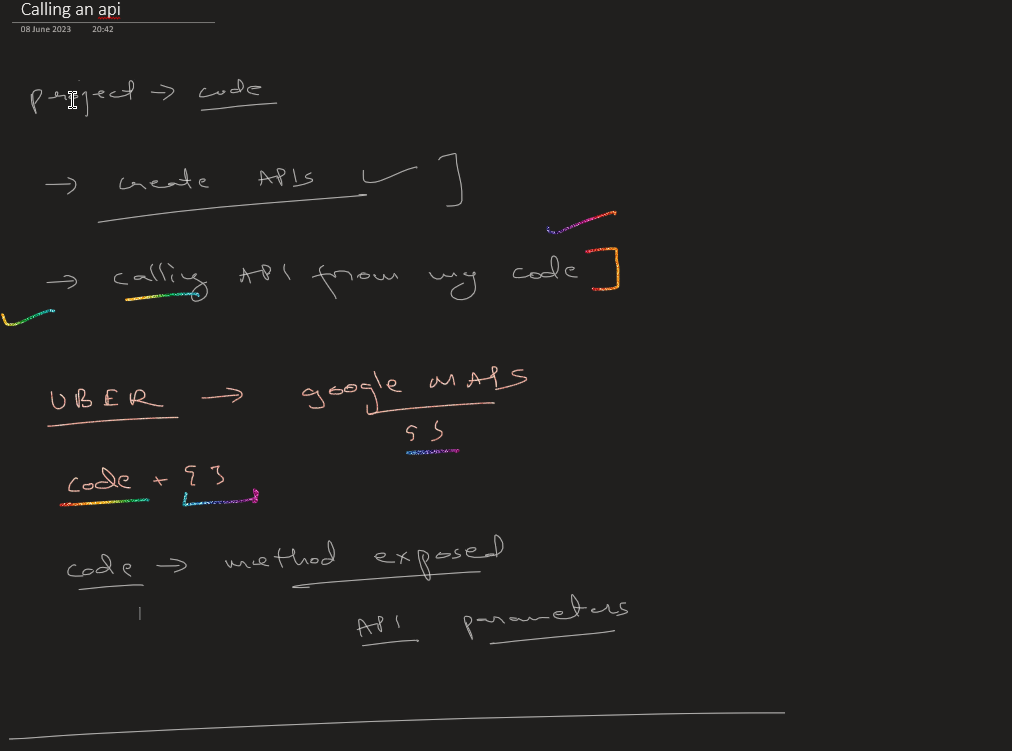 Calling an api
08 June 2023 20:42
project → code
→ create APIs ✓ ]
→ calling API from my code ]
UBER → google MAPS
{ }
code + { }
code → method exposed
API parameters